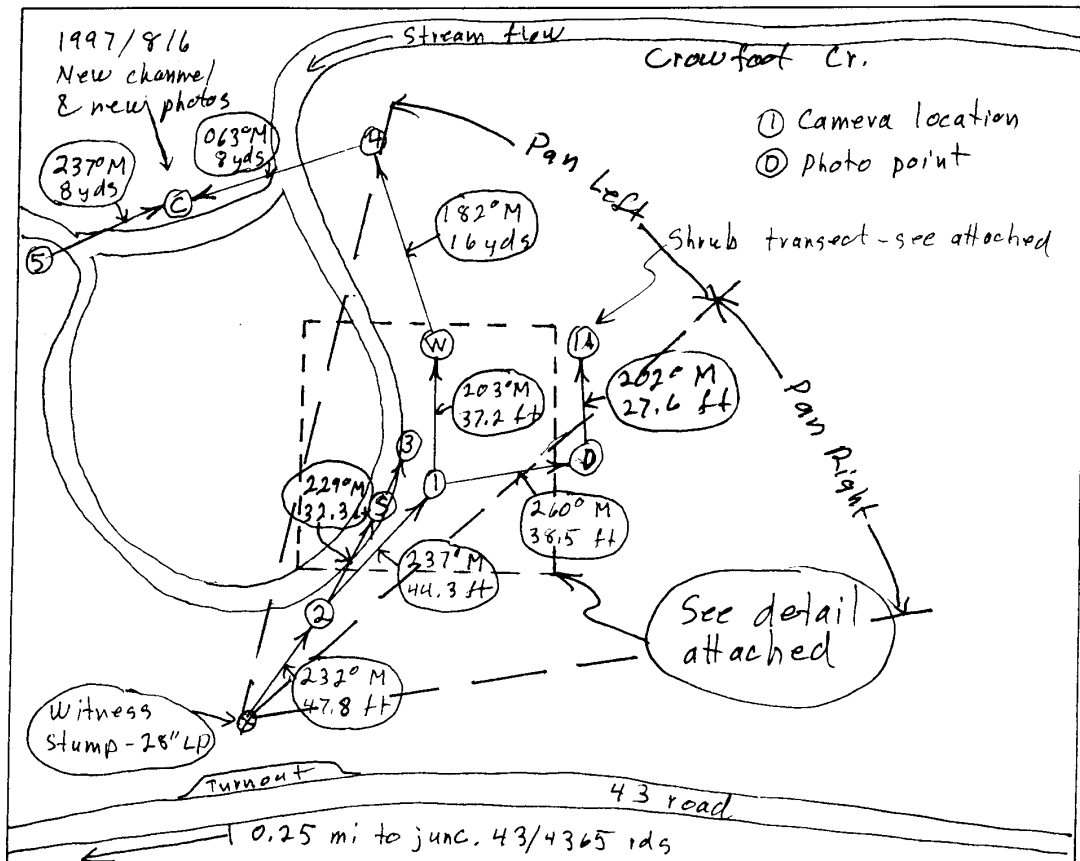 1997/8/6
New channel
& new photos
Stream flow
Crowfoot Cr.
① Camera location
Ⓓ Photo point
063°M
8 yds
237°M
8 yds
C
5
4
Pan Left
182°M
16 yds
Shrub transect - see attached
W
203°M
37.2 ft
202° M
27.6 ft
Pan Right
3
1
D
229°M
S
260° M
38.5 ft
237°M
44.3 ft
2
See detail
attached
232° M
47.8 ft
Witness
Stump - 28" LP
Turnout
43 road
0.25 mi to junc. 43/4365 rds